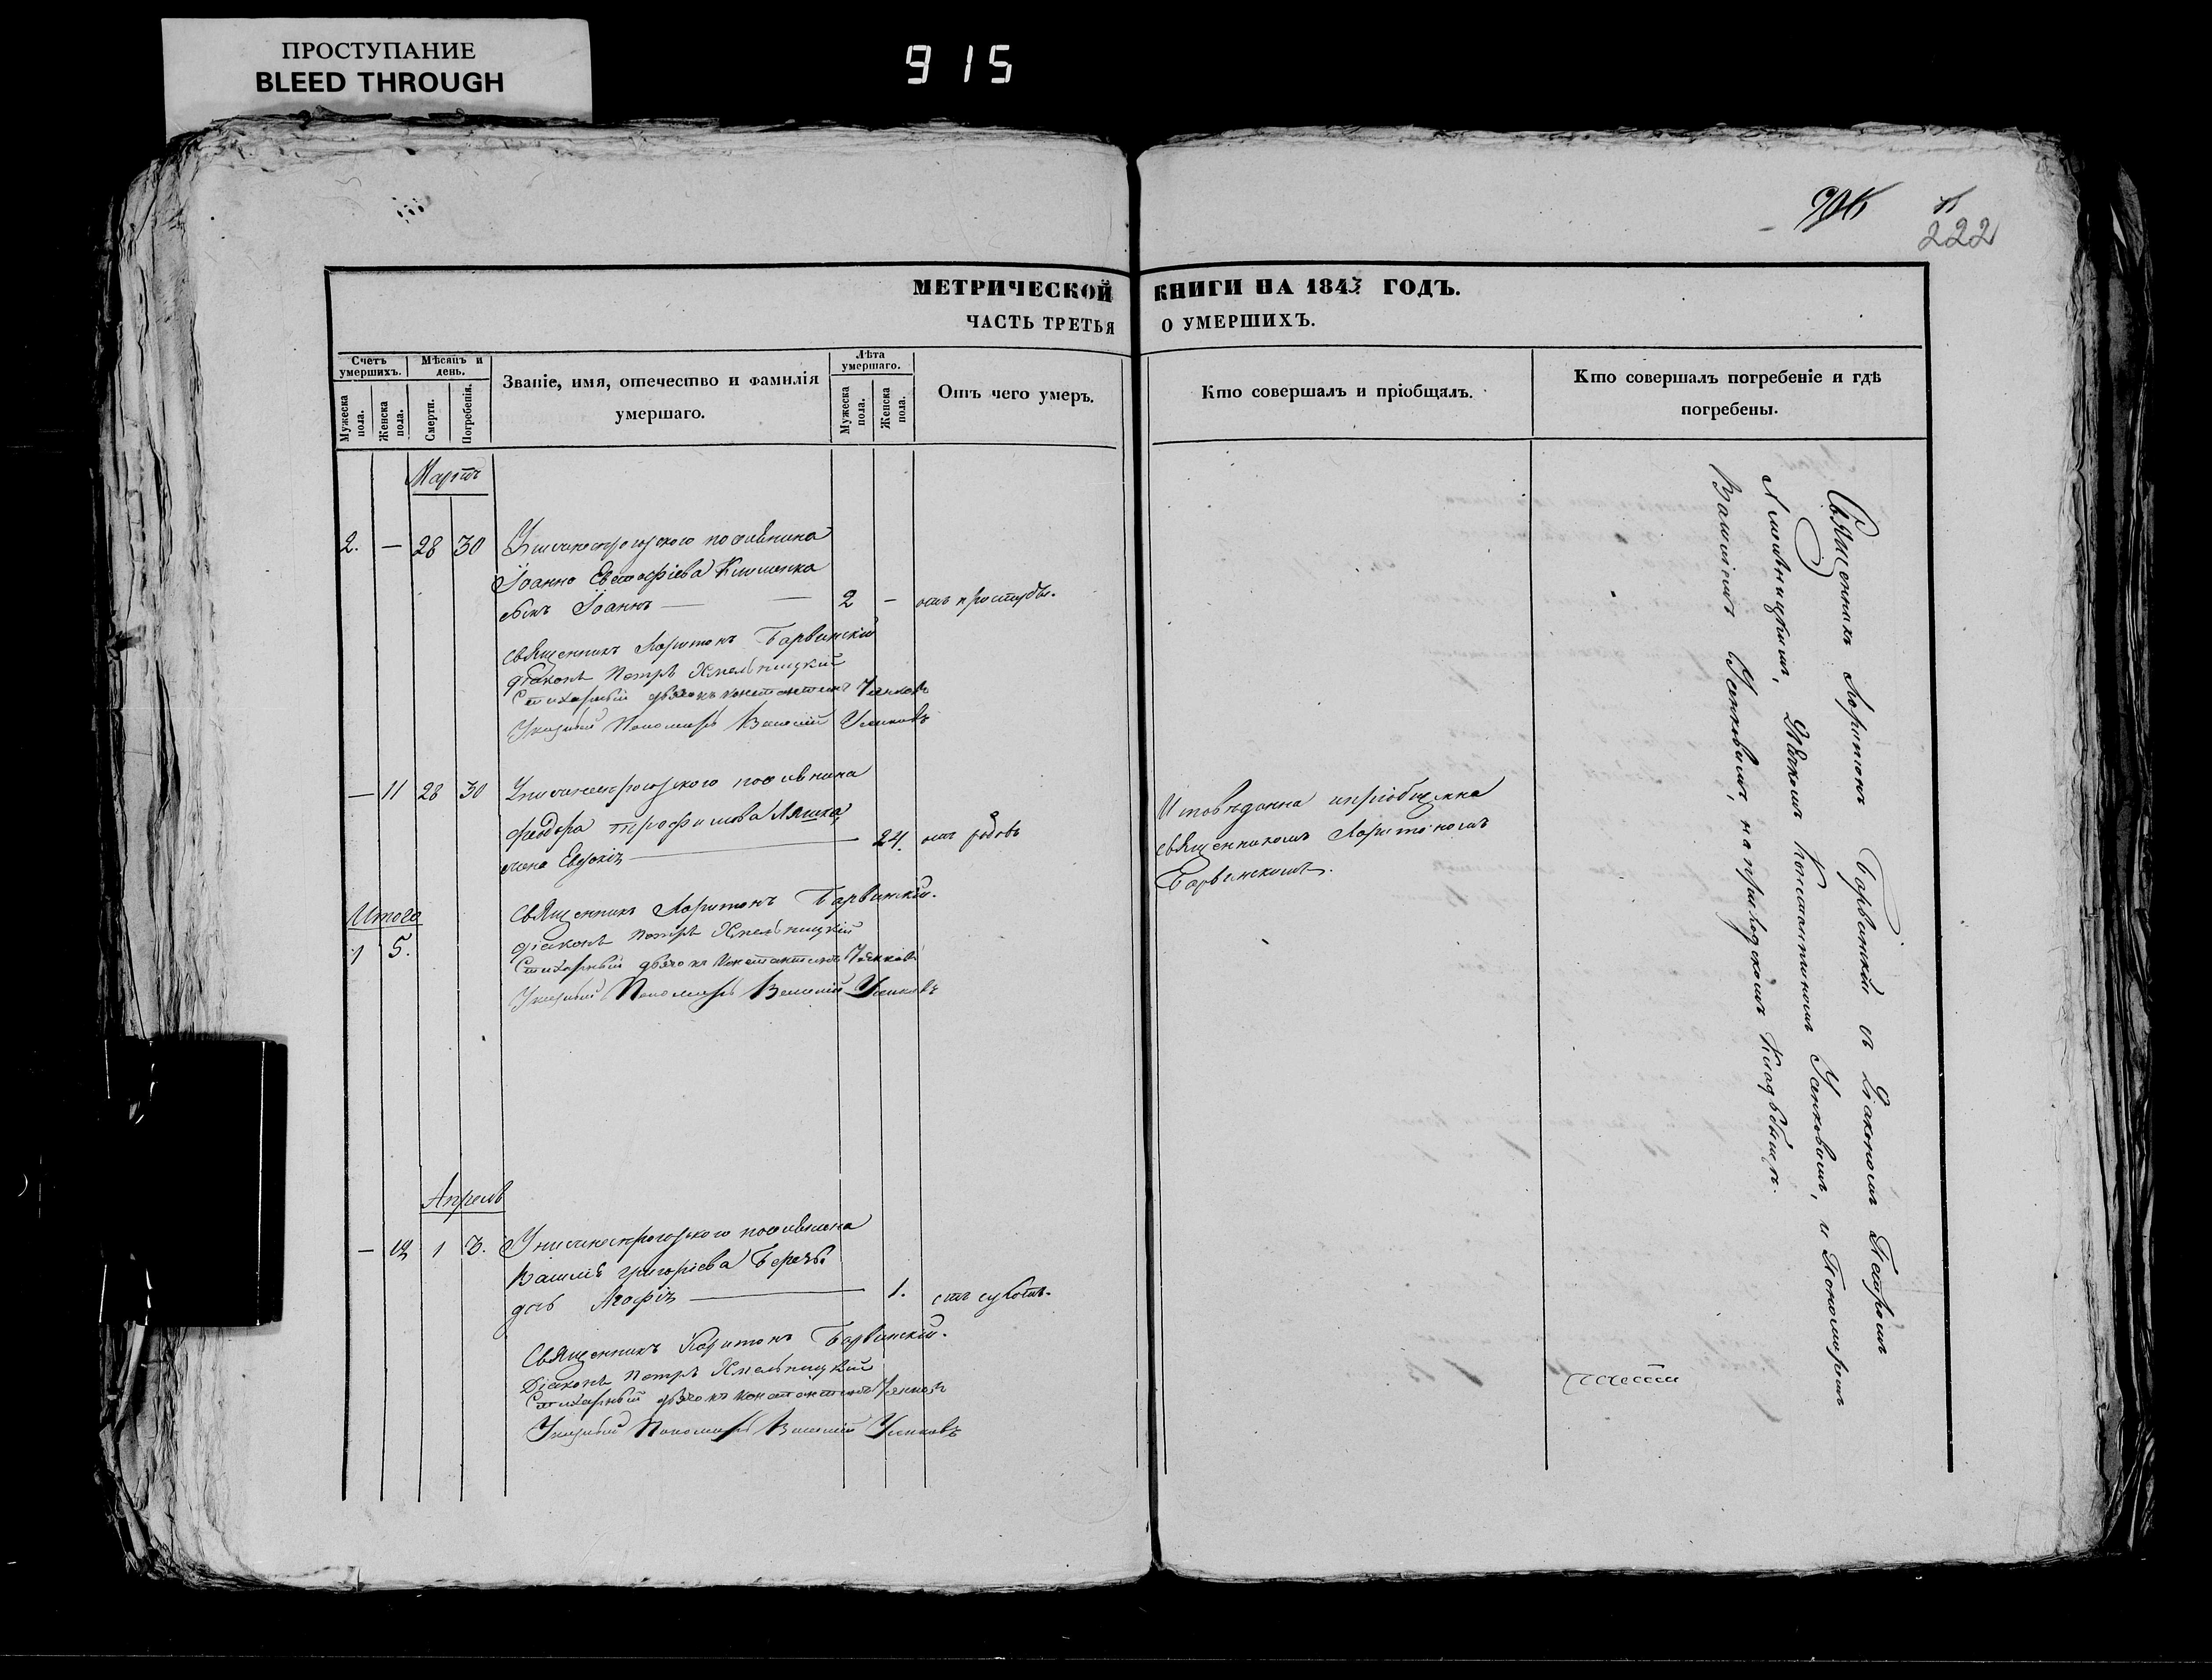 ПРОСТУПАНИЕ
BLEED THROUGH
915
222
МЕТРИЧЕСКОЙ КНИГИ НА 1843 ГОДЪ.
ЧАСТЬ ТРЕТЬЯ О УМЕРШИХЪ.
Счетъ умершихъ.
Мѣсяцъ и день.
Званіе, имя, отечество и фамилія умершаго.
Лѣта умершаго.
Отъ чего умеръ.
Кто совершалъ и пріобщалъ.
Кто совершалъ погребеніе и гдѣ погребены.
Мужеска пола.
Женска пола.
Смерти.
Погребенія.
Мужеска пола.
Женска пола.
Мартъ
2. — 28 30 поселянина
Іоанна Евстафіева Клименка
сынъ Іоаннъ — — 2 — отъ простуды.
священникъ Харитонъ Барвинскій
діаконъ Петръ Хмельницкій
Стихарный дьячокъ Константинъ Усенковъ
Указный Пономарь Василій Усенковъ
— 11 28 30 поселянина
Феодора Трофимова Ляшка
жена Евдокія — 24. отъ родовъ
Исповѣдана и пріобщена
священникомъ Харитономъ
Барвинскимъ.
священникъ Харитонъ Барвинскій.
Итого
діаконъ Петръ Хмельницкій
1 5.
Стихарный дьячокъ Константинъ Усенковъ
Указный Пономарь Василій Усенковъ
Апрель
— 12 1 3. поселянина
Василія Григоріева
дочь Агафія — 1. отъ сухотъ.
Священникъ Харитонъ Барвинскій.
Діаконъ Петръ Хмельницкій
Стихарный дьячокъ Константинъ Усенковъ
Указный Пономарь Василій Усенковъ
Священникъ Харитонъ Барвинскій съ Діакономъ Петромъ
Хмельницкимъ, Дьячкомъ Константиномъ Усенковымъ, и Пономаремъ
Василіемъ Усенковымъ, на приходскомъ Кладбищѣ.